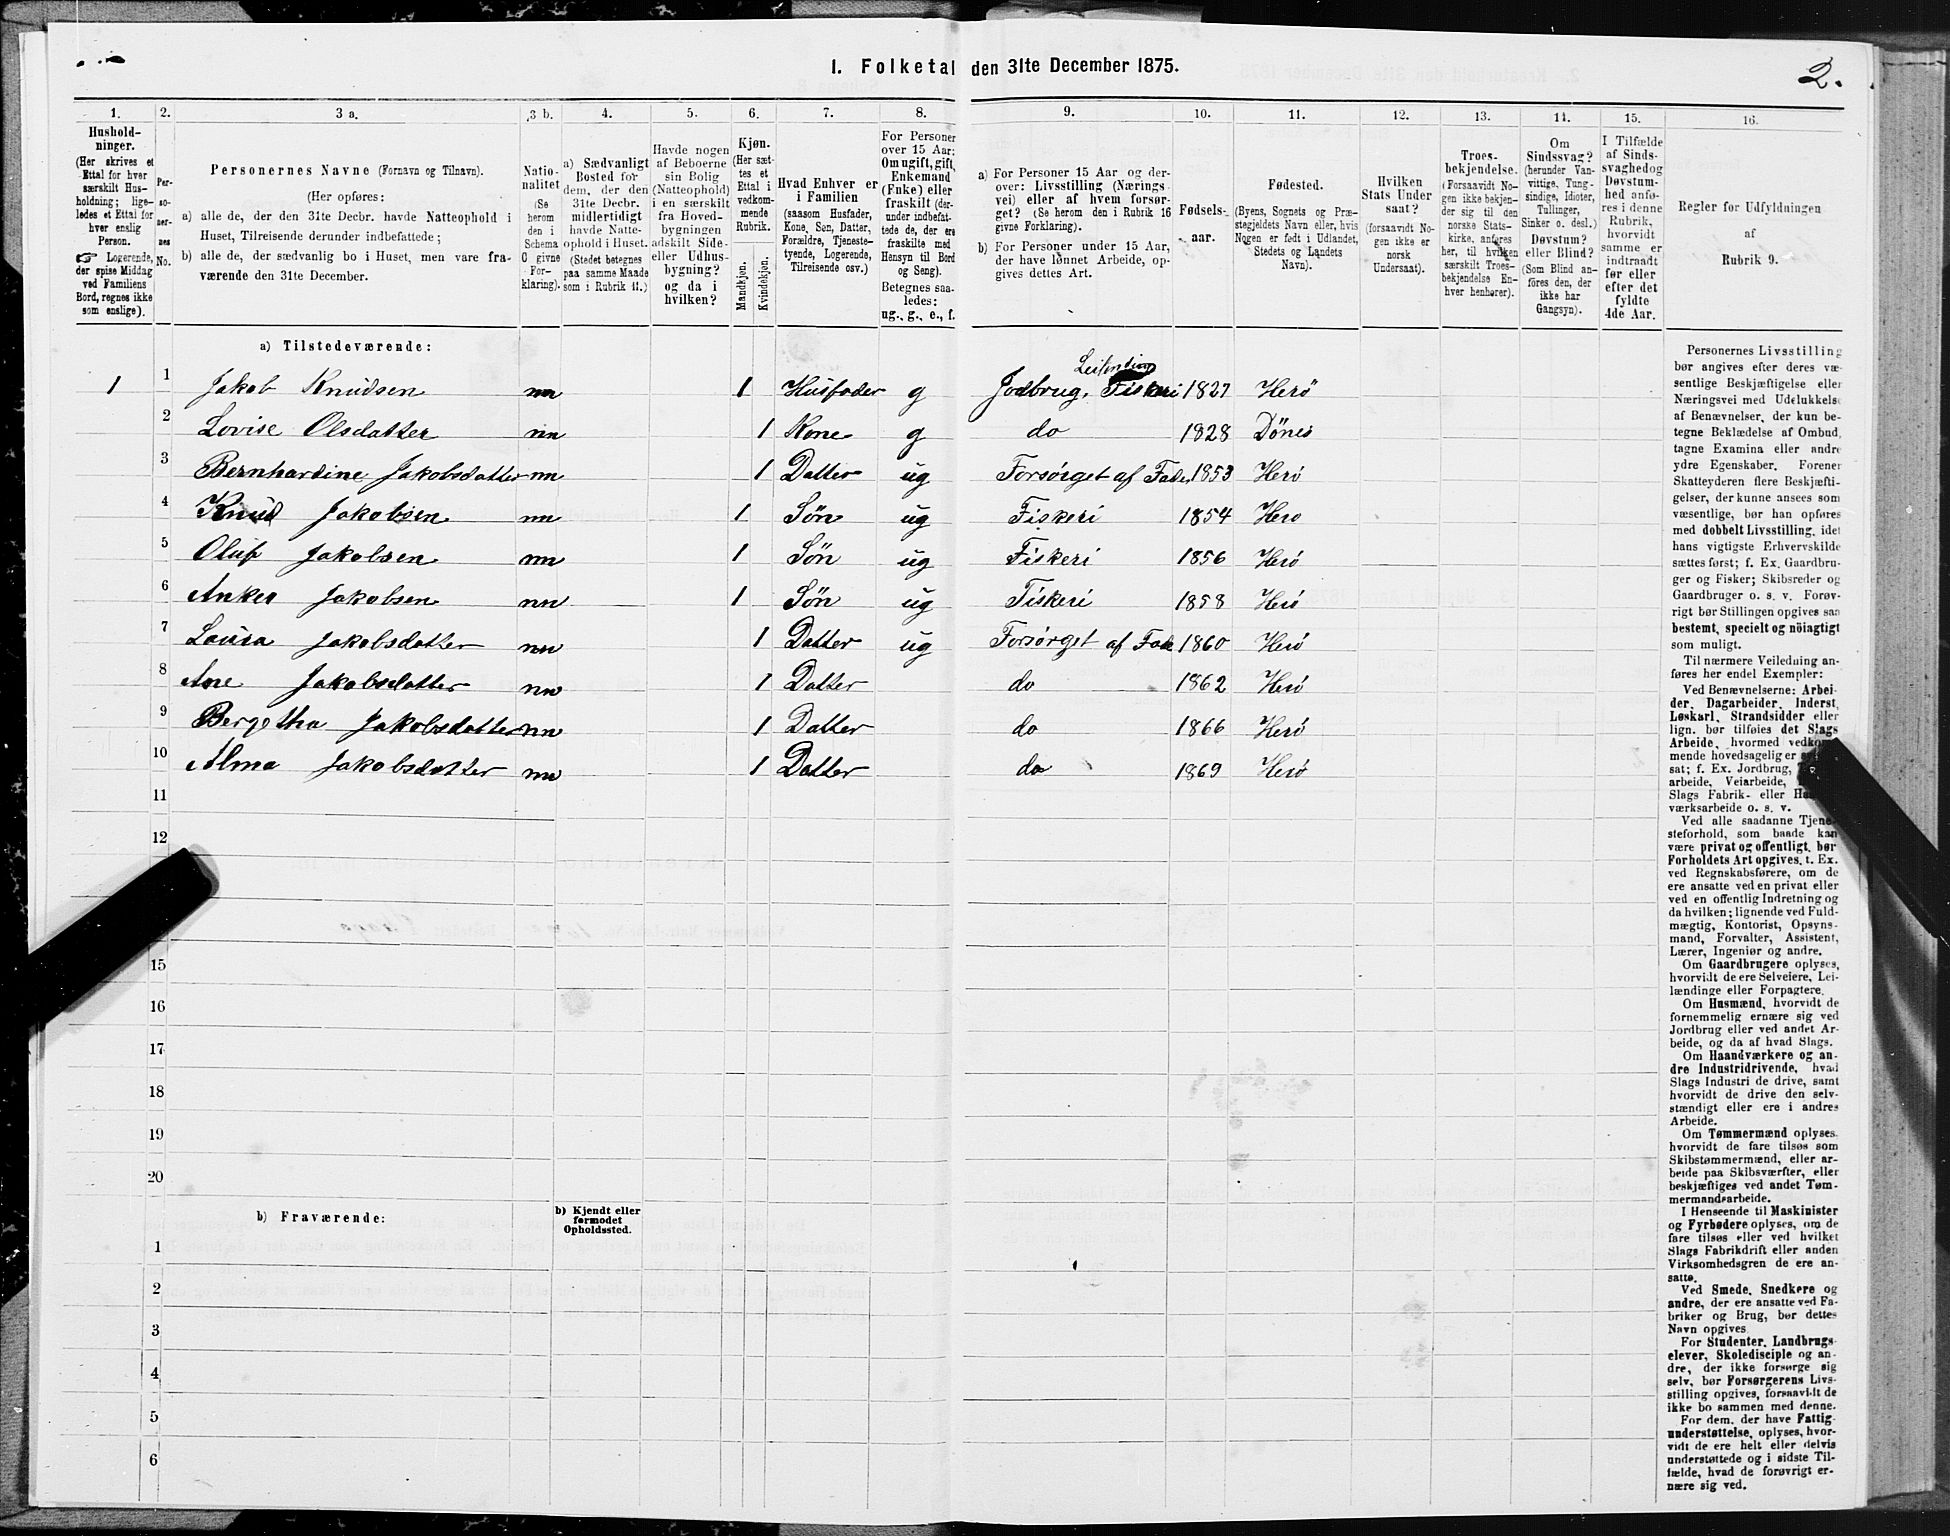 1. Folketal den 31te December 1875.
2.
1.
2.
3 a.
3 b.
4.
5.
6.
7.
8.
9.
10.
11.
12.
13.
14.
15.
16.
Hushold-
ninger.
(Her skrives et
Ettal for hver
særskilt Hus-
holdning; lige-
ledes et Ettal for
hver enslig
Person.
☞ Logerende,
der spise Middag
ved Familiens
Bord, regnes ikke
som enslige).
Per-
so-
ner-
nes
No.
Personernes Navne (Fornavn og Tilnavn).
(Her opføres:
a) alle de, der den 31te Decbr. havde Natteophold i
Huset, Tilreisende derunder indbefattede;
b) alle de, der sædvanlig bo i Huset, men vare fra-
værende den 31te December.
Natio-
nalitet
(Se
herom
den i
Schema
C givne
For-
klaring).
a) Sædvanligt
Bosted for
dem, der den
31te Decbr.
midlertidigt
havde Natte-
ophold i Huset.
(Stedet betegnes
paa samme Maade
som i Rubrik 11.)
Havde nogen
af Beboerne
sin Bolig
(Natteophold)
i en særskilt
fra Hoved-
bygningen
adskilt Side-
eller Udhus-
bygning?
og da i
hvilken?
Kjøn.
(Her sæt-
tes et
Ettal i
vedkom-
mende
Rubrik.
Mandkjøn.
Kvindekjøn.
Hvad Enhver er
i Familien
(saasom Husfader,
Kone, Søn, Datter,
Forældre, Tjeneste-
tyende, Logerende,
Tilreisende osv.)
For Personer
over 15 Aar:
Om ugift, gift,
Enkemand
(Enke) eller
fraskilt (der-
under indbefat-
tede de, der ere
fraskilte med
Hensyn til Bord
og Seng).
Betegnes saa-
ledes:
ug., g., e., f.
a) For Personer 15 Aar og der-
over: Livsstilling (Nærings-
vei) eller af hvem forsør-
get? (Se herom den i Rubrik 16
givne Forklaring).
b) For Personer under 15 Aar,
der have lønnet Arbeide, op-
gives dettes Art.
Fødsels-
aar.
Fødested.
(Byens, Sognets og Præ-
stegjeldets Navn eller, hvis
Nogen er født i Udlandet,
Stedets og Landets
Navn).
Hvilken
Stats Under
saat?
(forsaavidt No-
gen ikke er
norsk
Undersaat).
Troes-
bekjendelse.
(Forsaavidt No-
gen ikke bekjen-
der sig til den
norske Stats-
kirke, anføres
her, til hvilken
særskilt Troes-
bekjendelse En-
hver henhører).
Om
Sindssvag?
(herunder Van-
vittige, Tung-
sindige, Idioter,
Tullinger,
Sinker o. desl.)
Døvstum?
eller Blind?
(Som Blind an-
føres den, der
ikke har
Gangsyn).
I Tilfælde
af Sinds-
svaghed og
Døvstum-
hed anfø-
res i denne
Rubrik,
hvorvidt
samme er
indtraadt
før eller
efter det
fyldte
4de Aar.
Regler for Udfyldningen
af
Rubrik 9.
a) Tilstedeværende:
Leilending
1 1 Jakob Knudsen nn 1 Husfader g Jodbrug, Fiskeri 1827 Herö
2 Lovise Olsdatter nn 1 Kone g do 1828 Dönes
3 Bernhardine Jakobsdatter nn 1 Datter ug Forsørget af Fader 1853 Herö
4 Knud Jakobsen nn 1 Søn ug Fiskeri 1854 Hero
5 Oluf Jakobsen nn 1 Søn ug Fiskeri 1856 Herö
6 Anker Jakobsen nn 1 Søn ug Fiskeri 1858 Herö
7 Laura Jakobsdatter nn 1 Datter ug Forsørget af Fade 1860 Herö
8 Ane Jakobsdatter nn 1 Datter do 1862 Herö
9 Bergetha Jakobsdatter nn 1 Datter do 1866 Herö
10 Alma Jakobsdatter nn 1 Datter do 1869 Herö
11
12
15
16
17
18
19
20
b) Fraværende:
b) Kjendt eller
formodet
Opholdssted.
1
2
3
4
5
6
Personernes Livsstilling
bør angives efter deres væ-
sentlige Beskjæftigelse eller
Næringsvei med Udelukkelse
af Benævnelser, der kun be-
tegne Beklædelse af Ombud,
tagne Examina eller andre
ydre Egenskaber. Forener
Skatteyderen flere Beskjæfti-
gelser, der kunne ansees som
væsentlige, bør han opføres
med dobbelt Livsstilling, idet
hans vigtigste Erhvervskilde
sættes først; f. Ex. Gaardbru-
ger og Fisker; Skibsreder og
Gaardbruger o. s. v. Forøv-
rigt bør Stillingen opgives saa
bestemt, specielt og nöiagtigt
som muligt.
Til nærmere Veiledning an-
føres her endel Exempler:
Ved Benævnelserne: Arbei-
der, Dagarbeider, Inderst,
Løskarl, Strandsidder eller
lign. bør tilføies det Slags
Arbeide, hvormed vedkom-
mende hovedsagelig er
sat; f. Ex. Jordbrug,
arbeide, Veiarbeide,
Slags Fabrik- eller
værksarbeide o. s. v.
Ved alle saadanne Tjene-
steforhold, som baade kan
være privat og offentligt, bør
Forholdets Art opgives, t. Ex.
ved Regnskabsførere, om de
ere ansatte ved en privat eller
ved en offentlig Indretning og
da hvilken; lignende ved Fuld-
mægtig, Kontorist, Opsyns-
mand, Forvalter, Assistent,
Lærer, Ingeniør og andre.
Om Gaardbrugere oplyses,
hvorvidt de ere Selveiere, Lei-
lændinge eller Forpagtere.
Om Husmænd, hvorvidt de
fornemmelig ernære sig ved
Jordbrug eller ved andet Ar-
beide, og da af hvad Slags.
Om Haandværkere og an-
dre Industridrivende, hvad
Slags Industri de drive, samt
hvorvidt de drive den selv-
stændigt eller ere i andres
Arbeide.
Om Tømmermænd oplyses,
hvorvidt de fare tilsøs som
Skibstømmermænd, eller ar-
beide paa Skibsværfter, eller
beskjæftiges ved andet Tøm-
mermandsarbeide.
I Henseende til Maskinister
og Fyrbødere oplyses, om de
fare tilsøs eller ved hvilket
Slags Fabrikdrift eller anden
Virksomhedsgren de ere an-
satte.
Ved Smede, Snedkere og
andre, der ere ansatte ved Fa-
briker og Brug, bør dettes
Navn opgives
For Studenter, Landbrugs-
elever, Skoledisciple og an-
dre, der ikke forsørge sig
selv, bør Forsørgerens Livs-
stilling opgives, forsaavidt de
ikke bo sammen med denne.
For dem, der have Fattig-
understøttelse, oplyses, hvor-
vidt de ere helt eller delvis
understøttede og i sidste Til-
fælde, hvad de forøvrigt er-
nære sig ved.